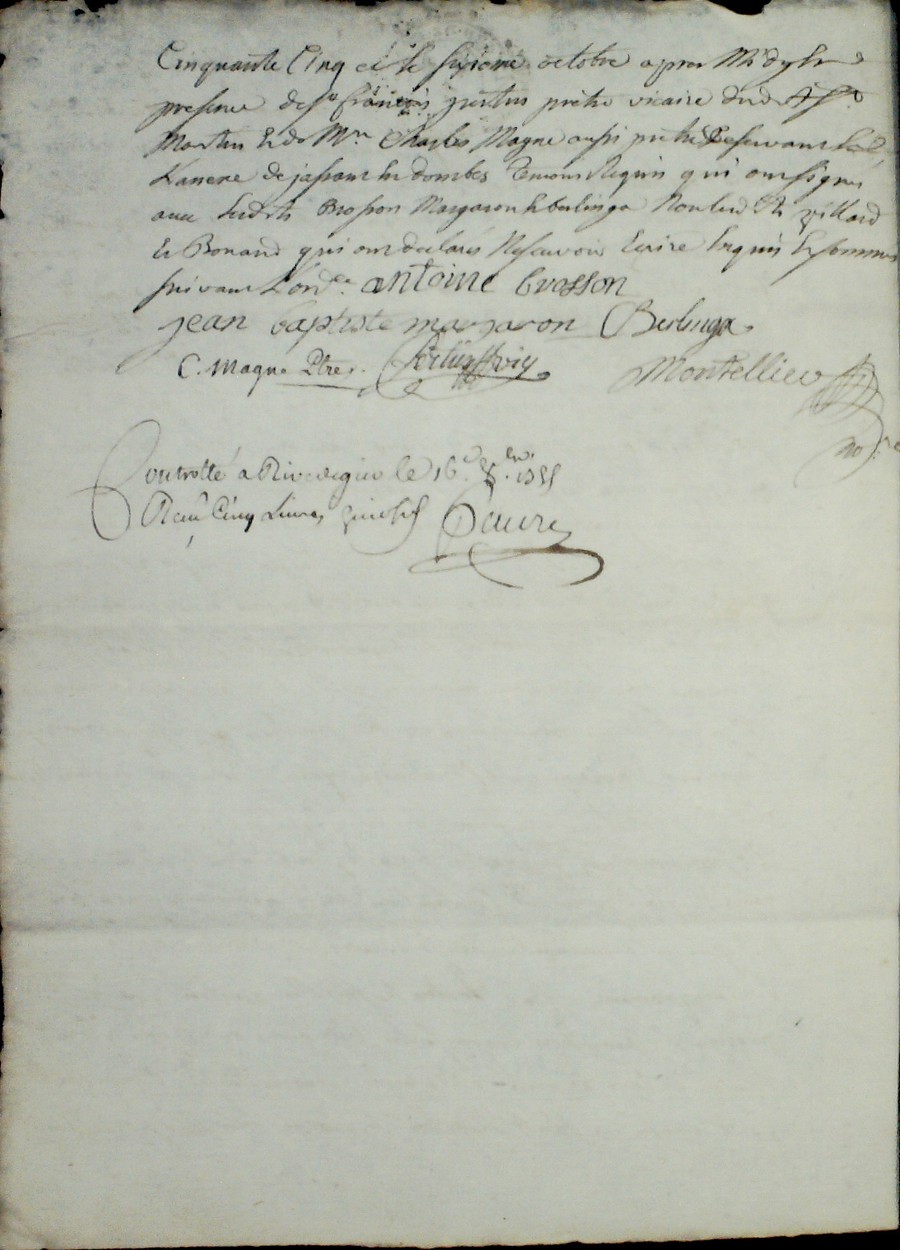 Cinquante Cinq et le sixieme octobre apres Midy En
presence de sr françois justus pretre vicaire dud. St
Martin Et de Mre Charles Magne aussi pretre Desservant
L'annexe de jassans En dombes Temoins Requis qui ont signé
avec lesdits Brosson Margaron & berlinga Non led. villard
Et Bonand qui ont declarés Ne scavoir Ecrire Enquis & sommés
suivant L'ordce. antoine brosson
jean baptiste margaron Berlinga
C. Magne Ptre. Montellier
no.re
Controllé a Rivedegier le 16e 8bre 1755
Recu Cinq Livres Faure